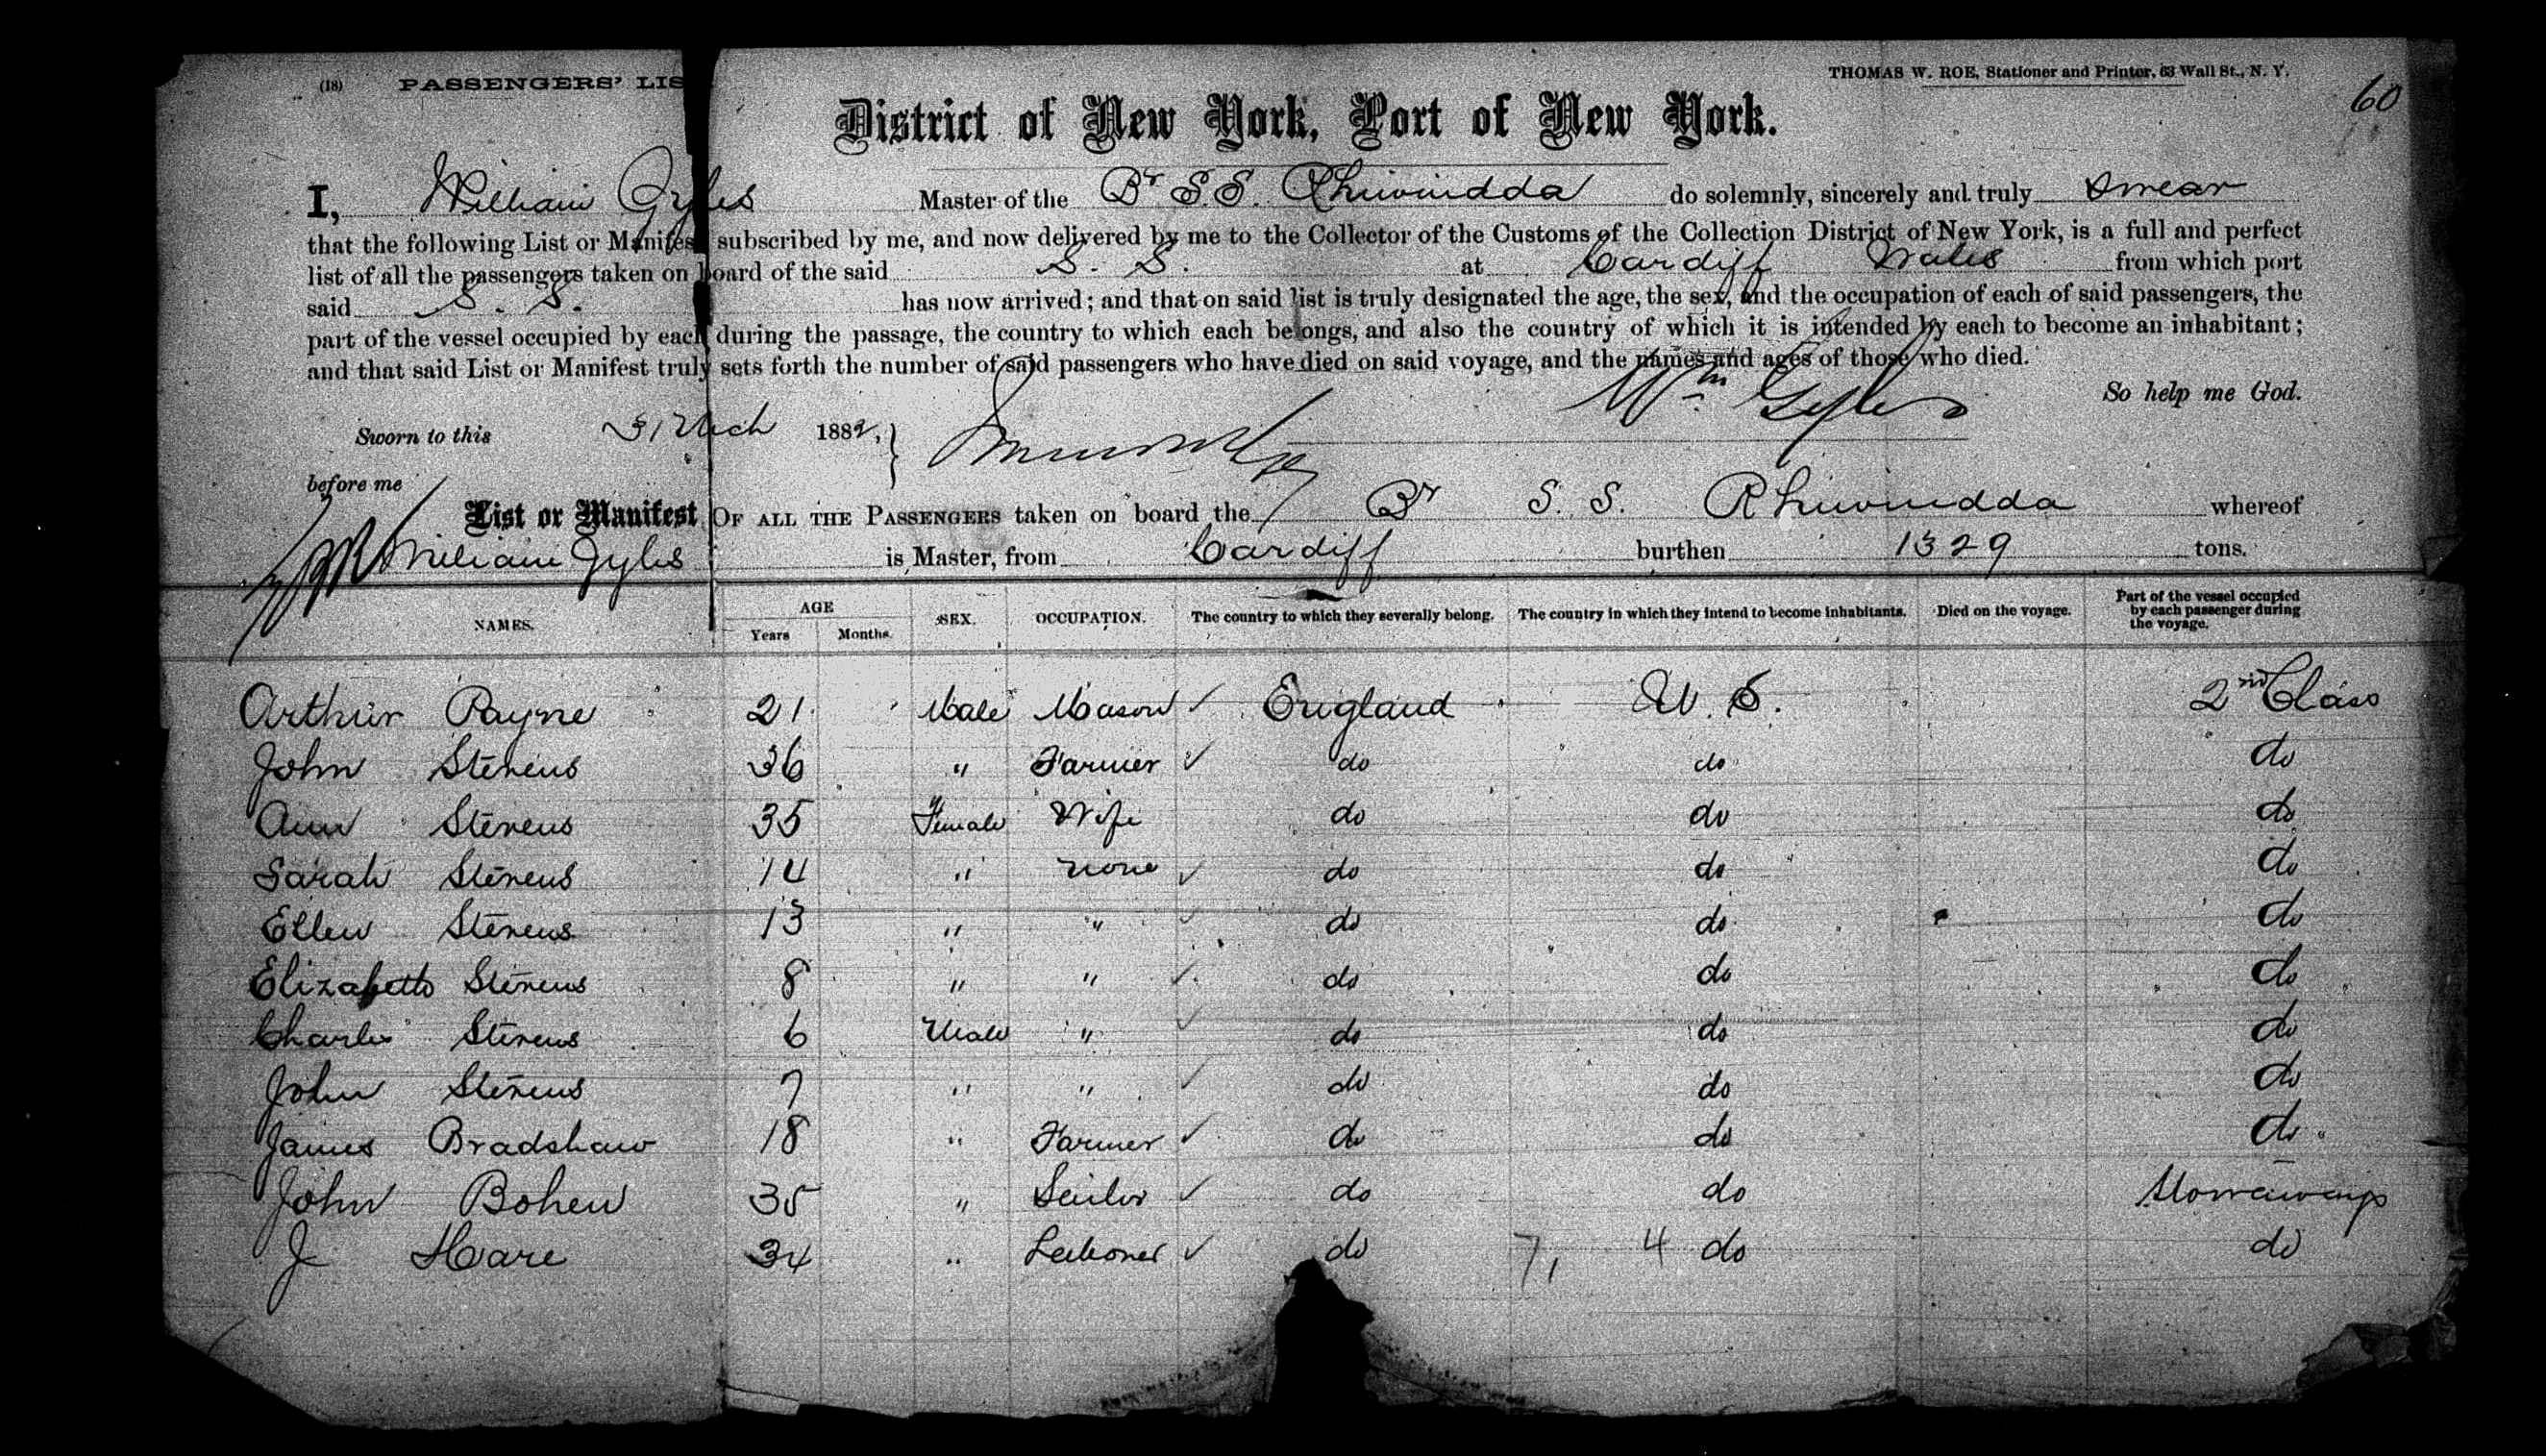 (18) PASSENGERS' LIS
THOMAS W. ROE, Stationer and Printer, 63 Wall St., N. Y.
60
District of New York, Port of New York.
I, William Gyles Master of the Br S.S. Rhiwindda do solemnly, sincerely and truly swear
that the following List or Manifes subscribed by me, and now delivered by me to the Collector of the Customs of the Collection District of New York, is a full and perfect
list of all the passengers taken on board of the said S. S. at Cardiff Wales from which port
said S. S. has now arrived; and that on said list is truly designated the age, the sex, and the occupation of each of said passengers, the
part of the vessel occupied by each during the passage, the country to which each belongs, and also the country of which it is intended by each to become an inhabitant;
and that said List or Manifest truly sets forth the number of said passengers who have died on said voyage, and the names and ages of those who died.
So help me God.
Wm Gyles
Sworn to this 31 Mch 1882,
before me
List or Manifest OF ALL THE PASSENGERS taken on board the Br S. S. Rhiwindda whereof
William Gyles is Master, from Cardiff burthen 1329 tons.
NAMES. AGE Years Months. SEX. OCCUPATION. The country to which they severally belong. The country in which they intend to become inhabitants. Died on the voyage. Part of the vessel occupied by each passenger during the voyage.
Arthur Payne 21 Male Mason ✓ England U. S. 2nd Class
John Stevens 36 " Farmer ✓ do do do
Ann Stevens 35 Female Wife do do do
Sarah Stevens 14 " none ✓ do do do
Ellen Stevens 13 " " ✓ do do do
Elizabeth Stevens 8 " " ✓ do do do
Charles Stevens 6 Male " ✓ do do do
John Stevens 7 " " ✓ do do do
James Bradshaw 18 " Farmer ✓ do do do
John Bohen 35 " Sailor ✓ do do Stowaways
J Hare 34 " Laborer ✓ do 7, 4 do do